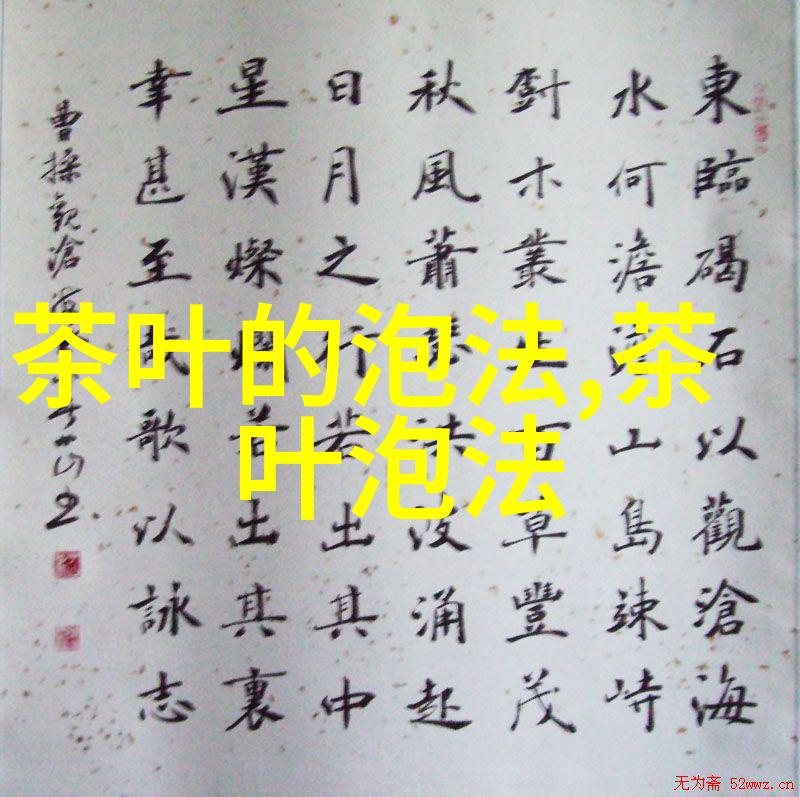 東臨碣石以觀滄海
水何澹澹山島竦峙
尌木叢生百草豐茂
秋風蕭瑟洪波涌起
日月之行若出其中
星漢燦爛若出其裏
幸甚至哉歌以詠志
曹操觀滄海
茶叶的泡法,茶
叶泡法
无为斋 52wwz.cn